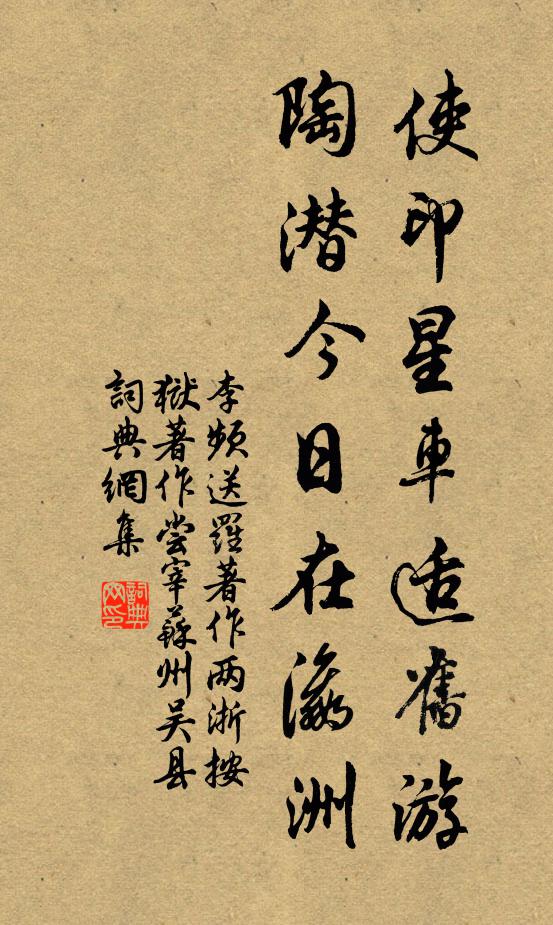 使印星車适舊游
陶潜今日在瀛洲
李频送羅著作两浙按
獄著作尝宰蘇州吴县
詞典網集
詞典
网印